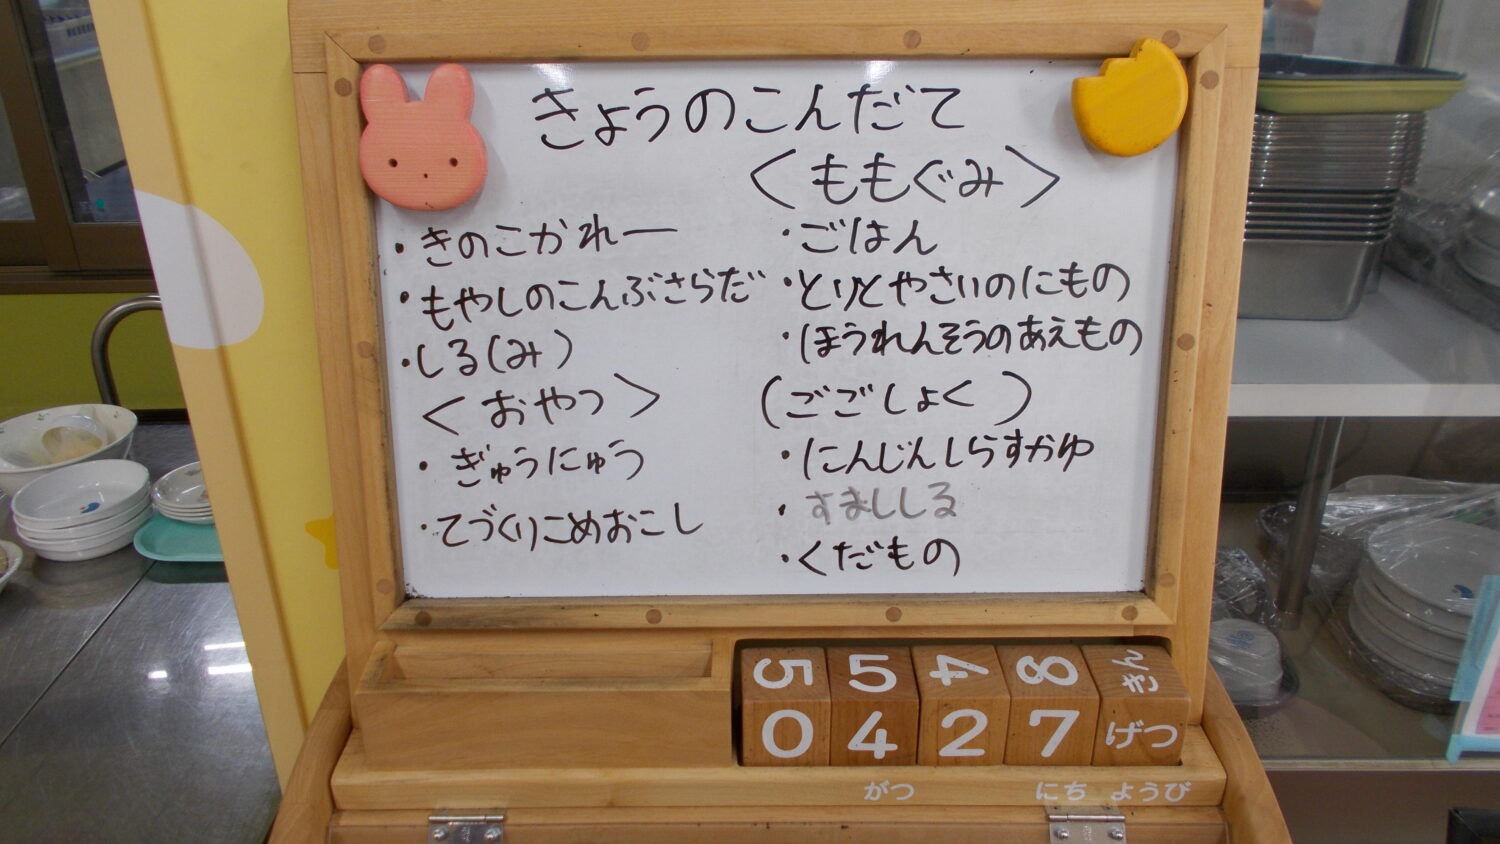 きょうのこんだて
・きのこかれー
・もやしのこんぶさらだ
・しる(み)
<おやつ>
・ぎゅうにゅう
・てづくりこめおこし
<ももぐみ>
・ごはん
・とりとやさいのにもの
・ほうれんそうのあえもの
(ごごしょく)
・にんじんしらすかゆ
・すましじる
・くだもの
5 5 4 8 きん
0 4 2 7 げつ
がつ にち ようび